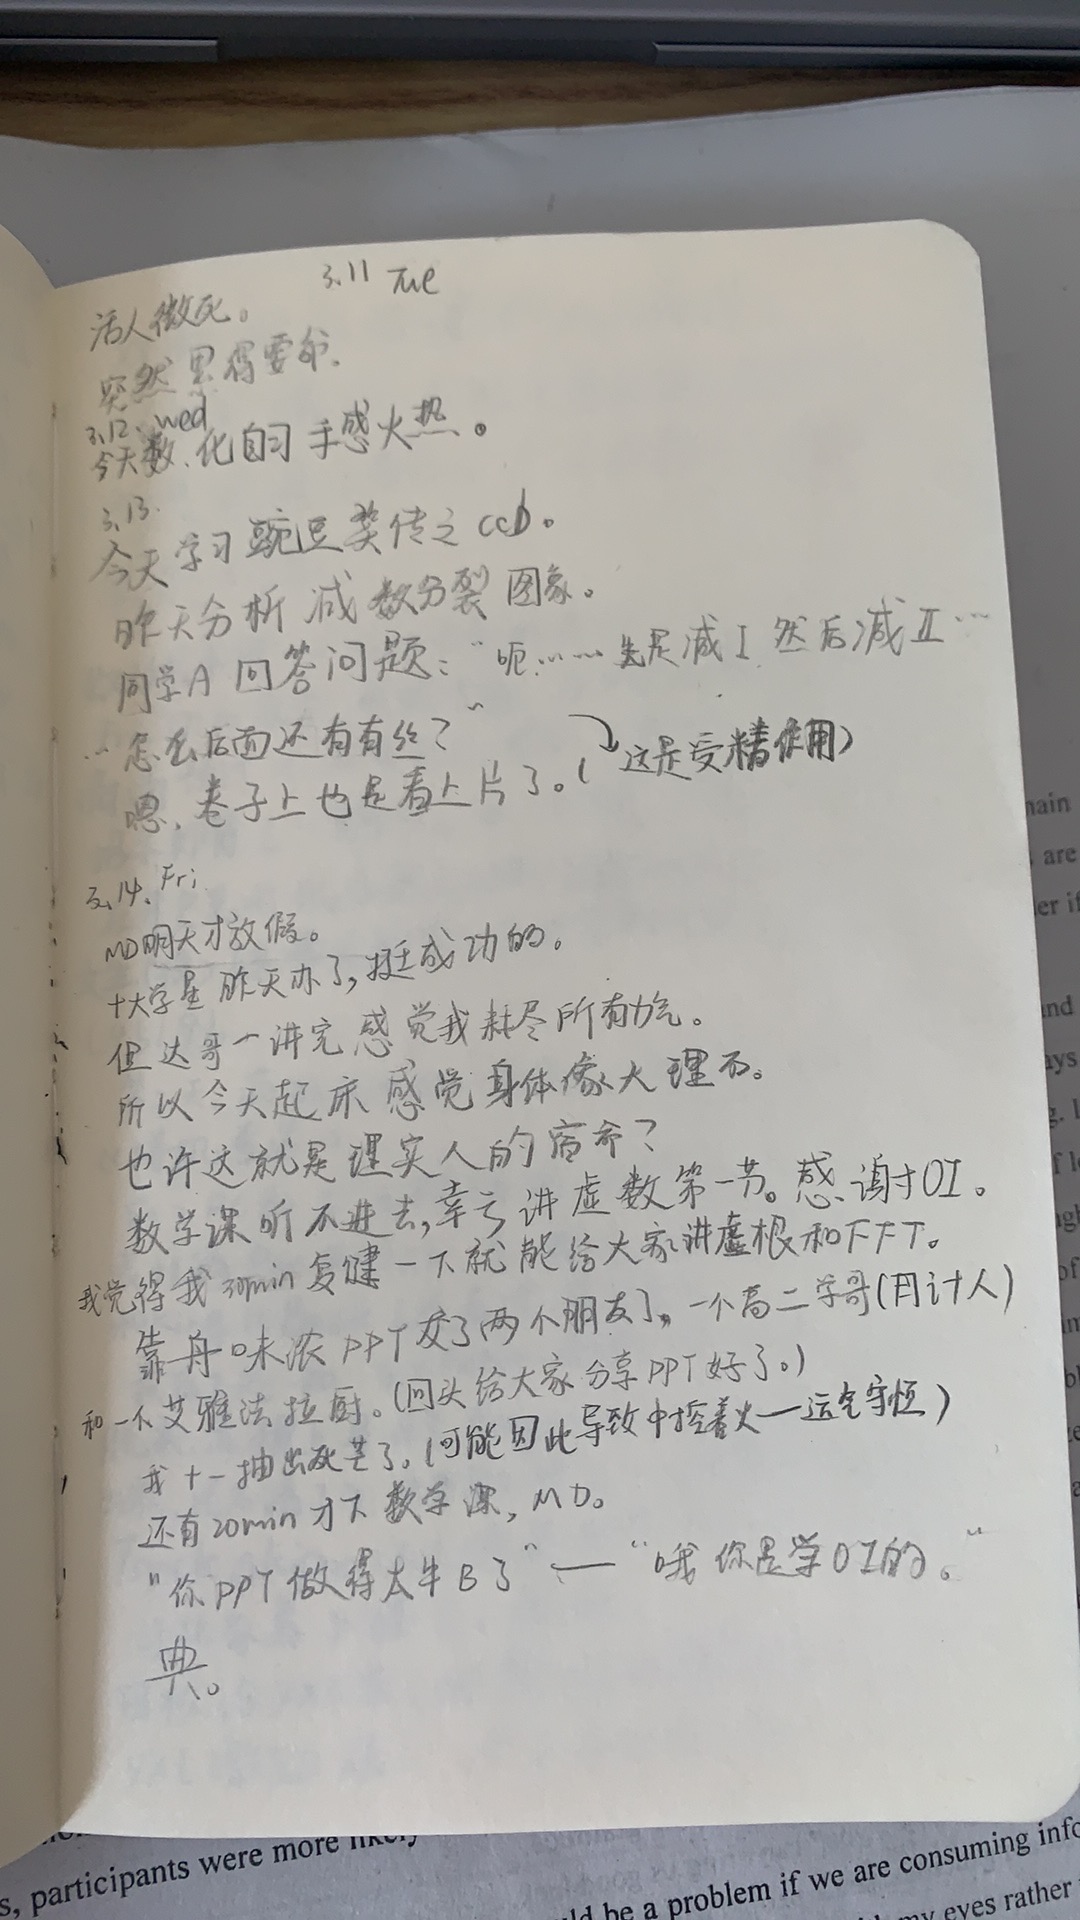 3.11 Tue
活人微死。
突然累得要命.
3.12. wed
今天数、化自习手感火热。
3.13.
今天学习豌豆荚传之ccb。
昨天分析减数分裂图象。
同学A回答问题:“呃……先是减I 然后减II…
…怎么后面还有有丝?”
这是受精作用)
嗯,卷子上也是看上片了。(
3.14. Fri
MD明天才放假。
十大学星昨天办了,挺成功的。
但达哥一讲完感觉我耗尽所有力气。
所以今天起床感觉身体像大理石。
也许这就是理实人的宿命?
数学课听不进去,幸亏讲虚数第一节。感谢OI。
我觉得我30min复健一下就能给大家讲虚根和FFT。
靠舟味浓PPT交了两个朋友,一个高二学哥(月计人)
和一个艾雅法拉厨。(回头给大家分享PPT好了。)
我十一抽出死芒了。(可能因此导致中控着火—运气守恒)
还有20min才下数学课,MD。
“你PPT做得太牛B了”——“哦你是学OI的。”
典。
main
are
er if
and
ays
s, participants were more likely
be a problem if we are consuming info
my eyes rather